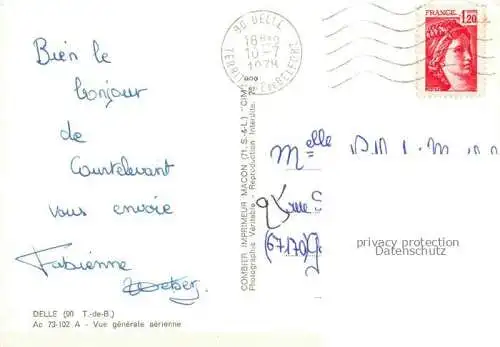 Bien le
bonjour
de
Courtelevant
vous envoie
Fabienne
DELLE (90 T.-de-B.)
Ac 73-102 A - Vue générale aérienne
COMBIER IMPRIMEUR MACON (71. S.-&-L.) "CIM"
Photographie Véritable - Reproduction Interdite.
90 DELLE
18H
10-7
1978
TERRIT. DE BELFORT
FRANCE
1,20
Melle
(67170)
privacy protection
Datenschutz